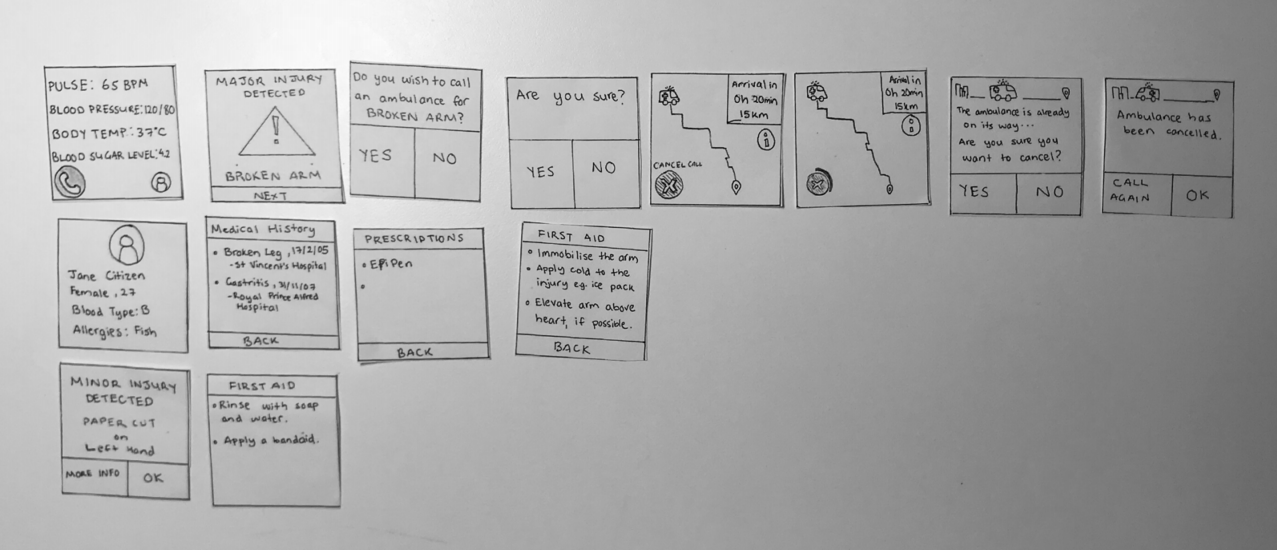 PULSE: 65 BPM
BLOOD PRESSURE: 120/80
BODY TEMP.: 37°C
BLOOD SUGAR LEVEL: 4.2
MAJOR INJURY
DETECTED
!
BROKEN ARM
NEXT
Do you wish to call
an ambulance for
BROKEN ARM?
YES
NO
Are you sure?
YES
NO
Arrival in
0h 20min
15km
i
CANCEL CALL
Arrival in
0h 20min
15km
i
The ambulance is already
on its way...
Are you sure you
want to cancel?
YES
NO
Ambulance has
been cancelled.
CALL
AGAIN
OK
Jane Citizen
Female, 27
Blood Type: B
Allergies: Fish
Medical History
• Broken Leg, 17/2/05
- St Vincent's Hospital
• Gastritis, 31/11/07
- Royal Prince Alfred
Hospital
BACK
PRESCRIPTIONS
• EpiPen
•
BACK
FIRST AID
• Immobilise the arm
• Apply cold to the
injury eg. ice pack
• Elevate arm above
heart, if possible.
BACK
MINOR INJURY
DETECTED
PAPER CUT
on
Left Hand
MORE INFO
OK
FIRST AID
• Rinse with soap
and water.
• Apply a bandaid.